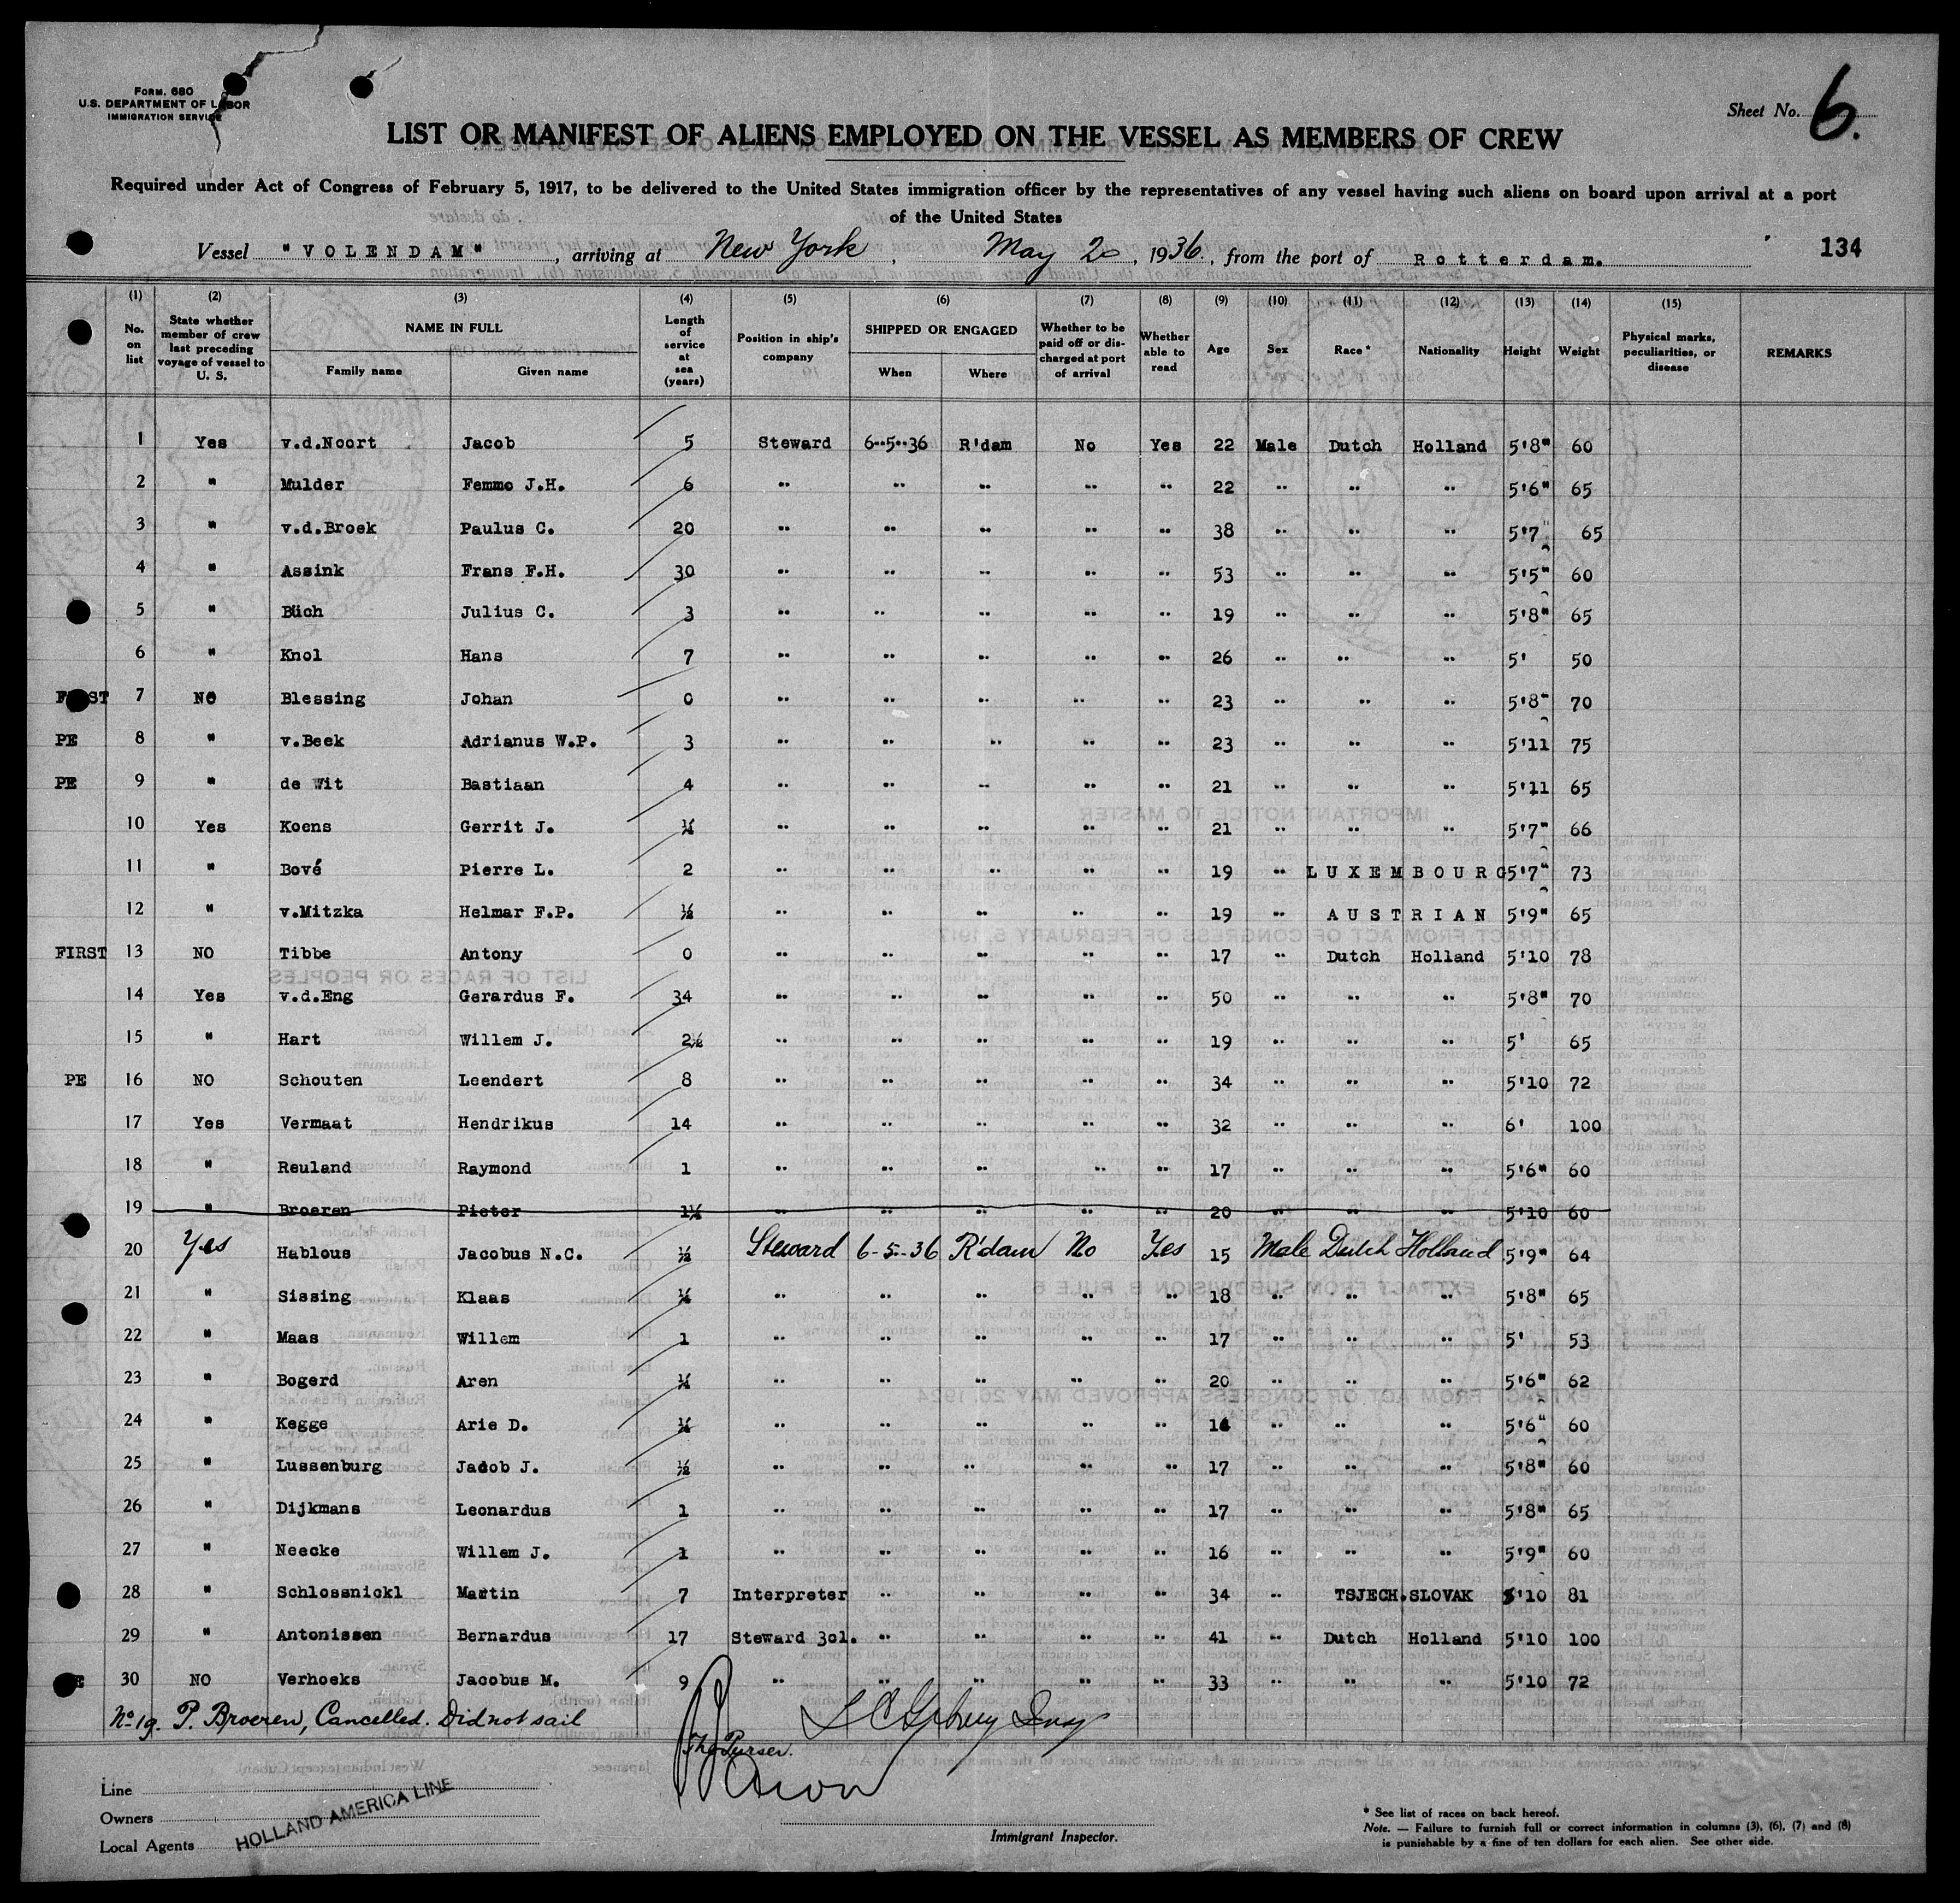 FORM. 680
U.S. DEPARTMENT OF LABOR
IMMIGRATION SERVICE
Sheet No. 6.
LIST OR MANIFEST OF ALIENS EMPLOYED ON THE VESSEL AS MEMBERS OF CREW
Required under Act of Congress of February 5, 1917, to be delivered to the United States immigration officer by the representatives of any vessel having such aliens on board upon arrival at a port
of the United States
Vessel "VOLENDAM", arriving at New York, May 20, 1936, from the port of Rotterdam. 134
(1) (2) (3) (4) (5) (6) (7) (8) (9) (10) (11) (12) (13) (14) (15)
No. on list | State whether member of crew last preceding voyage of vessel to U. S. | NAME IN FULL Family name Given name | Length of service at sea (years) | Position in ship's company | SHIPPED OR ENGAGED When Where | Whether to be paid off or discharged at port of arrival | Whether able to read | Age | Sex | Race* | Nationality | Height | Weight | Physical marks, peculiarities, or disease | REMARKS
1 Yes v.d.Noort Jacob 5 Steward 6--5--36 R'dam No Yes 22 Male Dutch Holland 5'8" 60
2 " Mulder Femmo J.H. 6 " " " " " 22 " " " 5'6" 65
3 " v.d.Broek Paulus C. 20 " " " " " 38 " " " 5'7" 65
4 " Assink Frans F.H. 30 " " " " " 53 " " " 5'5" 60
5 " Büch Julius C. 3 " " " " " 19 " " " 5'8" 65
6 " Knol Hans 7 " " " " " 26 " " " 5' 50
FIRST 7 NO Blessing Johan 0 " " " " " 23 " " " 5'8" 70
PE 8 " v.Beek Adrianus W.P. 3 " " " " " 23 " " " 5'11 75
PE 9 " de Wit Bastiaan 4 " " " " " 21 " " " 5'11 65
10 Yes Koens Gerrit J. " " " " " 21 " " " 5'7" 66
11 " Bové Pierre L. 2 " " " " " 19 " LUXEMBOURG 5'7" 73
12 " v.Mitzka Helmar F.P. ½ " " " " " 19 " AUSTRIAN 5'9" 65
FIRST 13 NO Tibbe Antony 0 " " " " " 17 " Dutch Holland 5'10 78
14 Yes v.d.Eng Gerardus F. 34 " " " " " 50 " " " 5'8" 70
15 " Hart Willem J. 2½ " " " " " 19 " " " 5' 65
PE 16 NO Schouten Leendert 8 " " " " " 34 " " " 5'10 72
17 Yes Vermaat Hendrikus 14 " " " " " 32 " " " 6' 100
18 " Reuland Raymond 1 " " " " " 17 " " " 5'6" 60
19 " Broeren Pieter " " " " " 20 " " " 5'10 60
20 Yes Hablous Jacobus N.C. ½ Steward 6-5-36 R'dam No Yes 15 Male Dutch Holland 5'9" 64
21 " Sissing Klaas " " " " " 18 " " " 5'8" 65
22 " Maas Willem 1 " " " " " 17 " " " 5' 53
23 " Bogerd Aren " " " " " 20 " " " 5'6" 62
24 " Kegge Arie D. " " " " " " " " 5'6" 60
25 " Lussenburg Jacob J. ½ " " " " " 17 " " " 5'8" 60
26 " Dijkmans Leonardus 1 " " " " " 17 " " " 5'8" 65
27 " Neecke Willem J. 1 " " " " " 16 " " " 5'9" 60
28 " Schlossnickl Martin 7 Interpreter " " " " 34 " TSJECH.SLOVAK 5'10 81
29 " Antonissen Bernardus 17 Steward 3cl. " " " " 41 " Dutch Holland 5'10 100
PE 30 NO Verhoeks Jacobus M. 9 " " " " " 33 " " " 5'10 72
No 19. P. Broeren, Cancelled. Did not sail
The Purser.
Line
Owners
Local Agents
HOLLAND AMERICA LINE
Immigrant Inspector.
* See list of races on back hereof.
Note. — Failure to furnish full or correct information in columns (3), (6), (7) and (8)
is punishable by a fine of ten dollars for each alien. See other side.